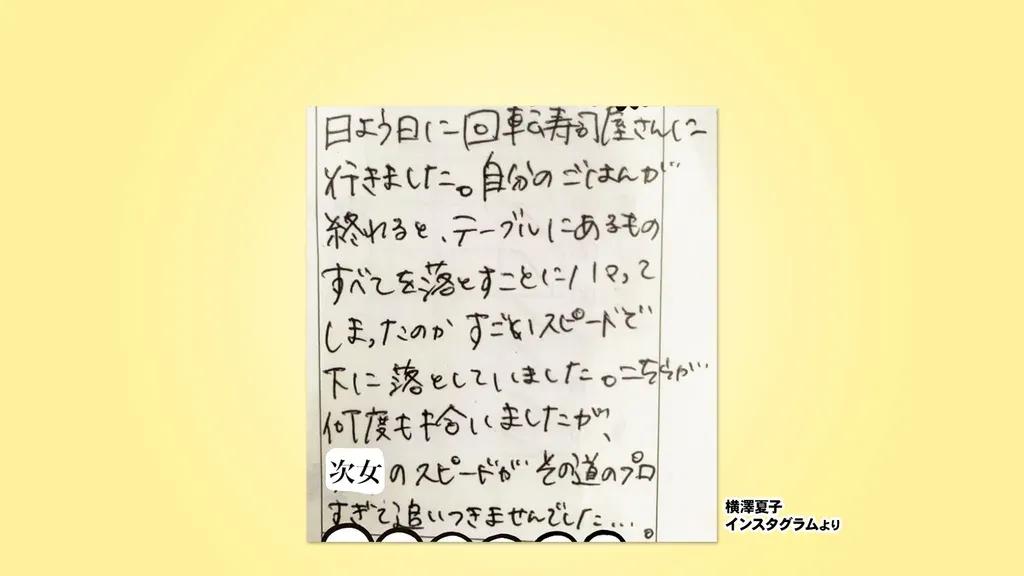 日よう日に回転寿司屋さんに
行きました。自分のごはんが
終れると、テーブルにあるもの
すべてを落とすことにハマって
しまったのかすごいスピードで
下に落としていました。こちらが
何度も拾いましたが、
次女のスピードがその道のプロ
すぎて追いつきませんでした…。
横澤夏子
インスタグラムより